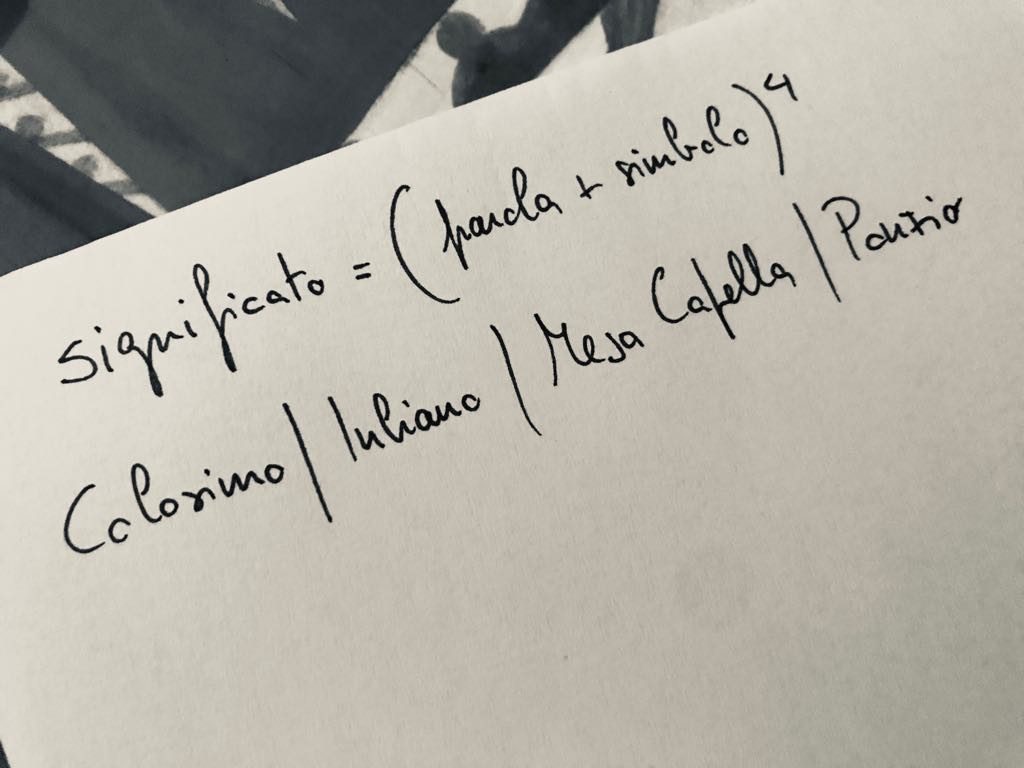 significato = (parola + simbolo)⁴
Colosimo / Iuliano / Mesa Capella / Ponzio